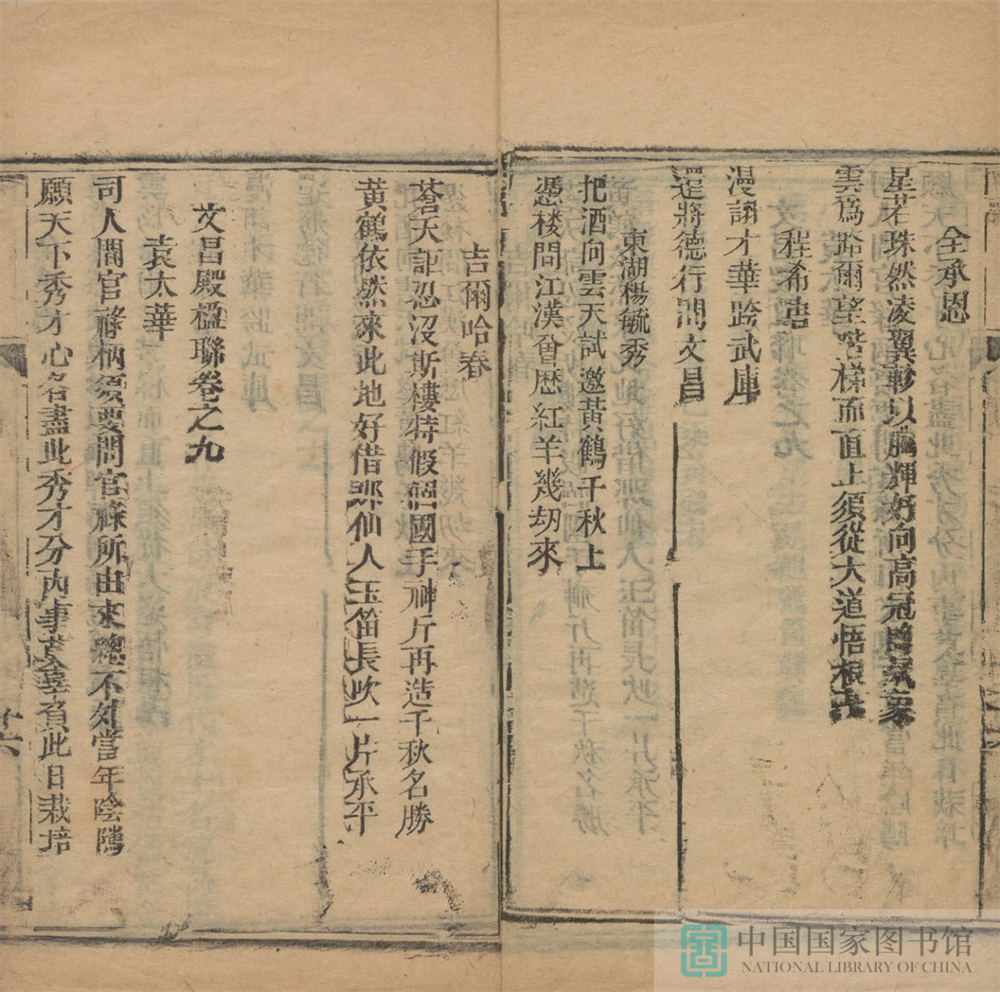 全承恩
星若珠然凌翼軫以騰輝好向高冠瞻氣象
雲爲路爾望階梯而直上須從大道悟根
程希
漫詡才華跨武庫
還將德行問文昌
東湖楊毓秀
把酒向雲天試邀黃鶴千秋上
凴楼問江漢曾歷紅羊幾刼來
吉爾哈春
蒼天詎忍沒斯樓特假個國手斤再造千秋名勝
黃鶴依然來此地好借那仙人玉笛長吹一片承平
文昌殿楹聯卷之九
袁太華
司人間官祿柄須要問官祿所由來總不外當年陰隲
願天下秀才心各盡此秀才分內事莫辜負此日栽培
六
中国国家图书馆
NATIONAL LIBRARY OF CHINA